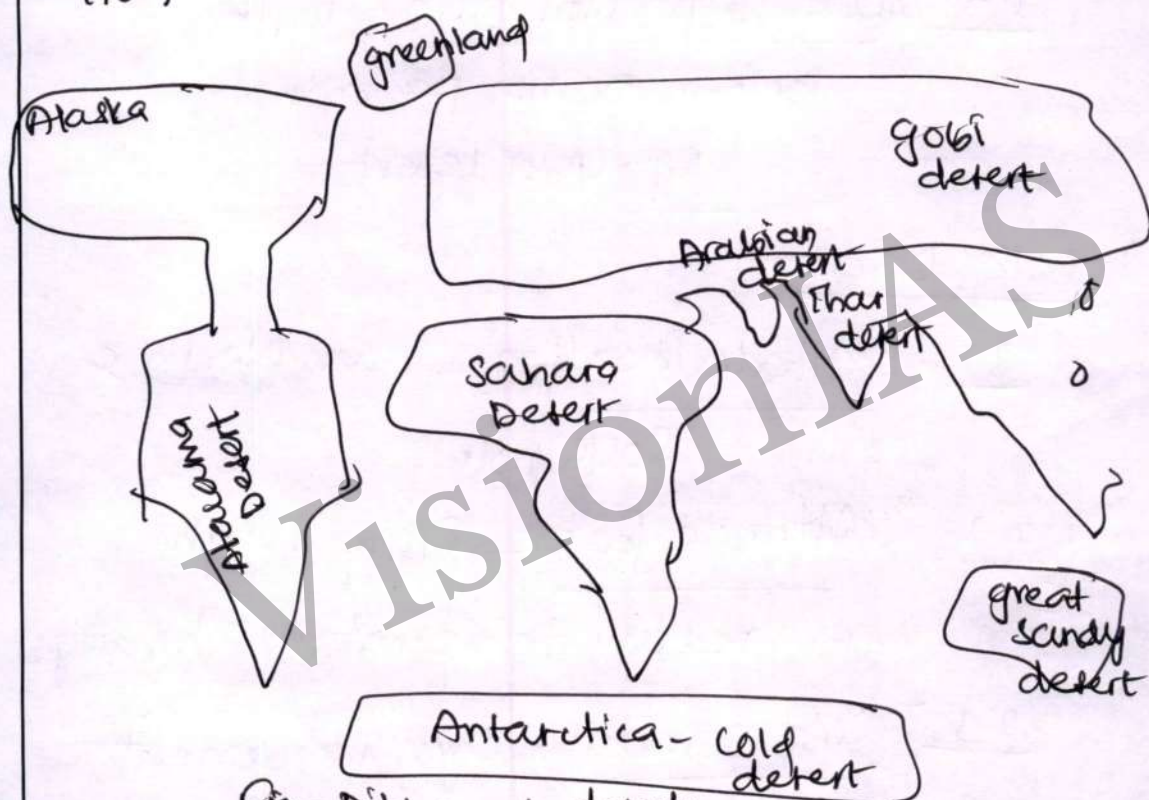 greenland
Alaska
gobi
desert
Arabian
desert
Thar
desert
Sahara
Desert
Atacama
Desert
great
sandy
desert
Antarctica - cold
desert
VisionIAS